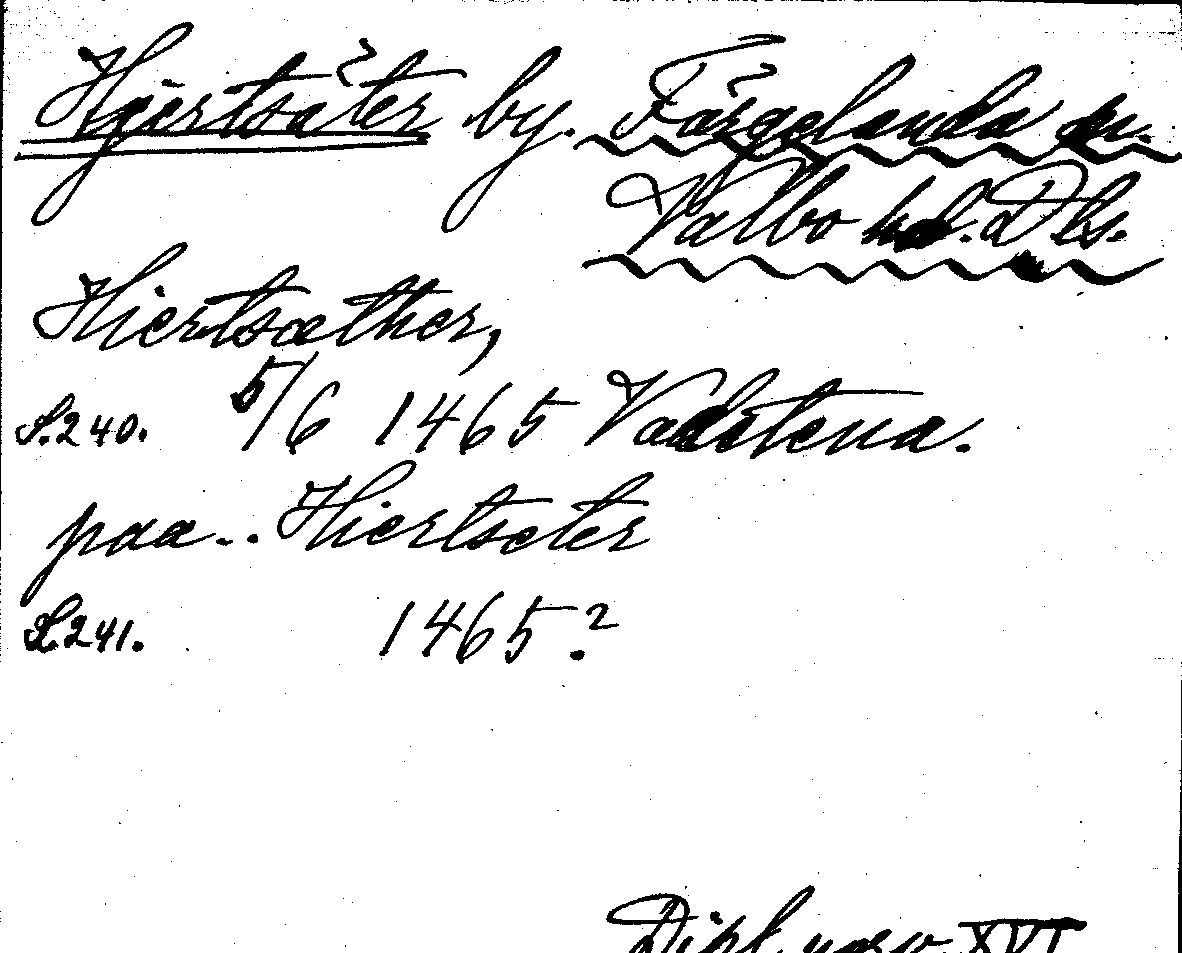 Hjertsäter by. Färgelanda sn.
Valbo hd. Dls.
Hiertsæther,
S.240. 5/6 1465 Vadstena.
paa... Hiertseter
S.241. 1465.?
Dipl. norv. XVI